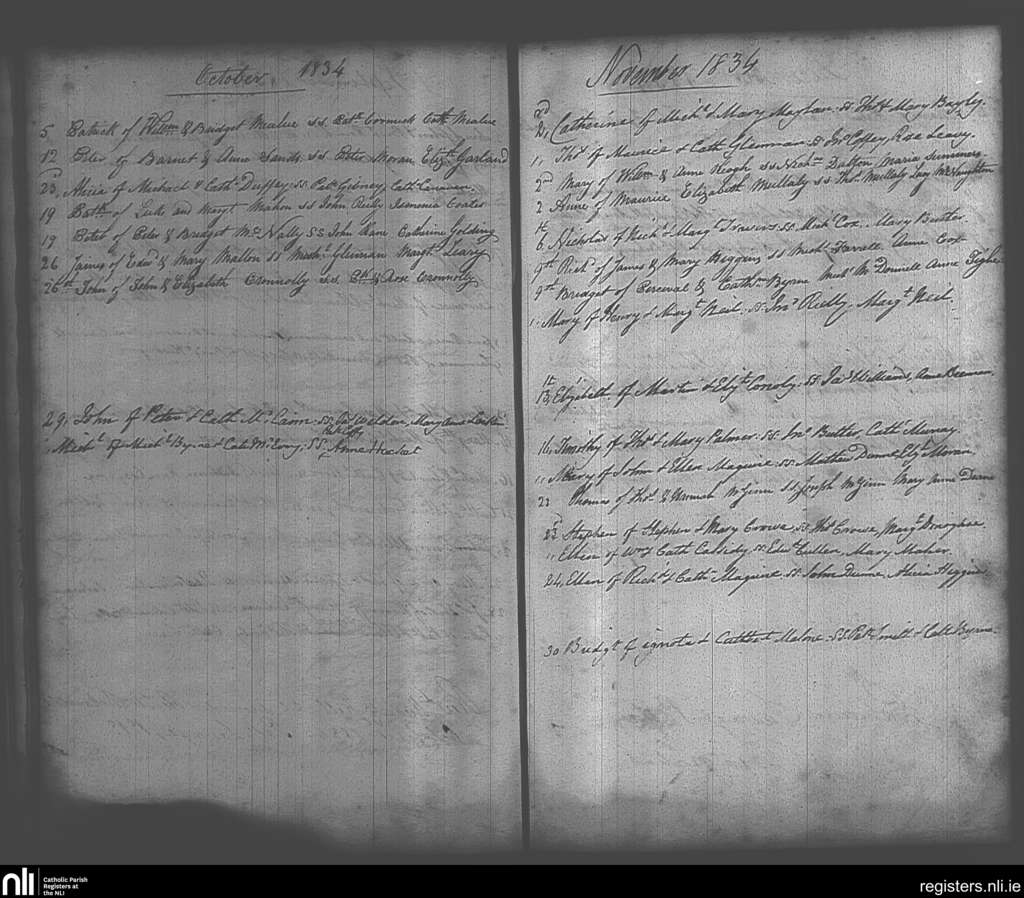 October 1834
5 Patrick of Willm & Bridget Mealue S.S. Patk Cormick Cath Mealue
12 Peter of Barnet & Anne Sands S.S Peter Moran Elizth Garland
23d, Alicia of Michael & Cathe Duffey SS Patk Gibney, Cathe
19 of Luke and Margt Mahon SS John Reily Ismenia Coates
19 Peter of Peter & Bridget McNally SS John Kane Catherine Golding
26 James of Edwd & Mary Mallon SS Michl Glennan Margt Leary
26th John of John & Elizabeth Cronnolly S.S. & Rose Cronnolly
29, John of Peter & Cath McCann SS Jas Weldon, Mary Anne
" Michl of Michl Byrne & Cath McEvoy, SS, Anne
November 1834
2d, Catherine of Michl & Mary Maylan SS Thos & Mary Bayly.
" Thos of Maurice & Cath Glennan SS Jno Coffey, Rose Leavy.
2nd Mary of Willm & Anne Keogh SS Nichs Dalton Maria Summers
2 Anne of Maurice Elizabeth Mullaly SS Thos Mullaly Lucy McNaughton
6th Nicholas of Richd & Margt Travers SS Michl Cox, Mary Butler
9th Richd of James & Mary Biggins SS Michl Farrell Anne Cox
9th Bridget of Perceval & Cathe Byrne Michl McDonnell Anne Tighe
" Mary of Henry & Margt Neil SS Jno Rielly, Margt Neil
13th, Elizabeth of Martin & Elizt SS Jas Williams, Anne Brennan
16, Timothy of Thos & Mary Palmer SS Jno Butler Cath Murray
" Mary of John & Ellen Maguire SS Matthew Elizt Moran
22 Thomas of Thos & Hannah McGinn SS Joseph McGinn Mary Anne
23d Stephen of Stephen & Mary Crowe SS Thos Crowe, Margt Donoghoe
" of Wm & Cath Cassidy SS Edwd Cullen, Mary Maher
24, Ellen of Richd & Cath Maguire SS John Dunne, Alicia Higgins
30 Bridgt of ignota & Cathert Malone SS Patk Smith & Cath Byrne
nli
Catholic Parish
Registers at
the NLI
registers.nli.ie